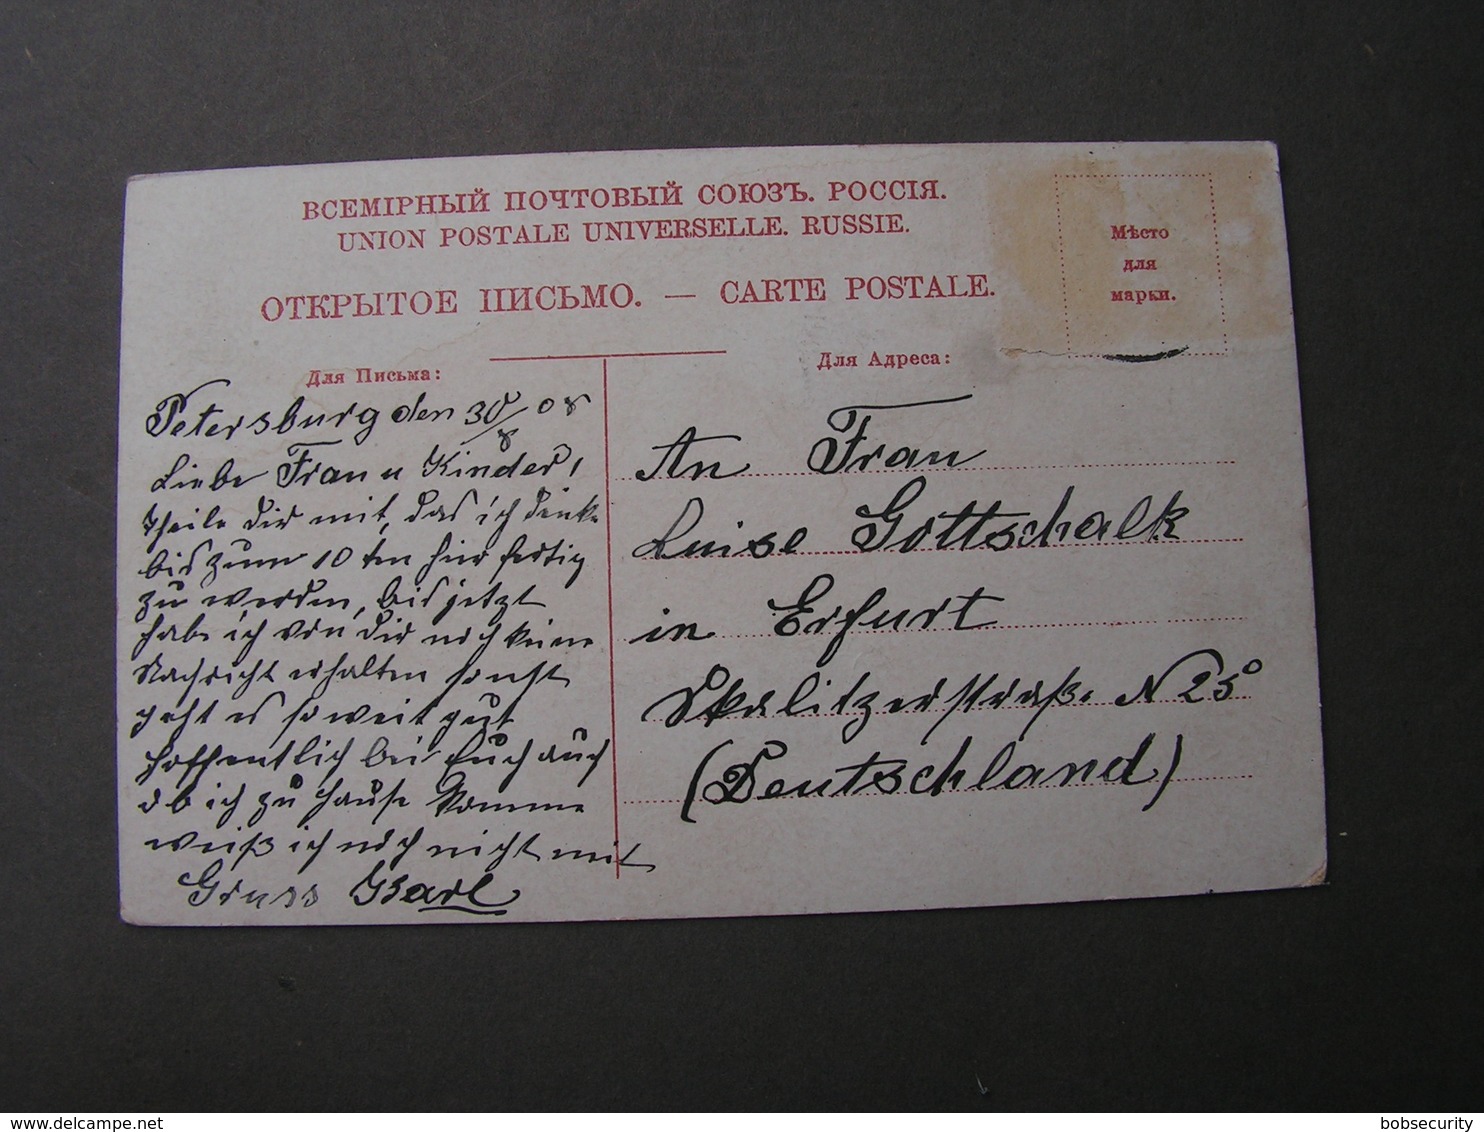 ВСЕМІРНЫЙ ПОЧТОВЫЙ СОЮЗЪ. РОССІЯ.
UNION POSTALE UNIVERSELLE. RUSSIE.
ОТКРЫТОЕ ПИСЬМО. — CARTE POSTALE.
Мѣсто
для
марки.
Для Письма:
Petersburg den 30/8 08
Liebe Frau u Kinder,
Theile dir mit, das ich denke
bis zum 10ten hier fertig
zu werden, bis jetzt
habe ich von dir noch keine
Nachricht erhalten sonst
geht es soweit gut
hoffentlich bei Euch auch
ob ich zu Hause komme
weiß ich noch nicht mit
Gruss Karl
Для Адреса:
An Frau
Luise Gottschalk
in Erfurt
Skalitzerstraße N 25°
(Deutschland)
bobsecurity